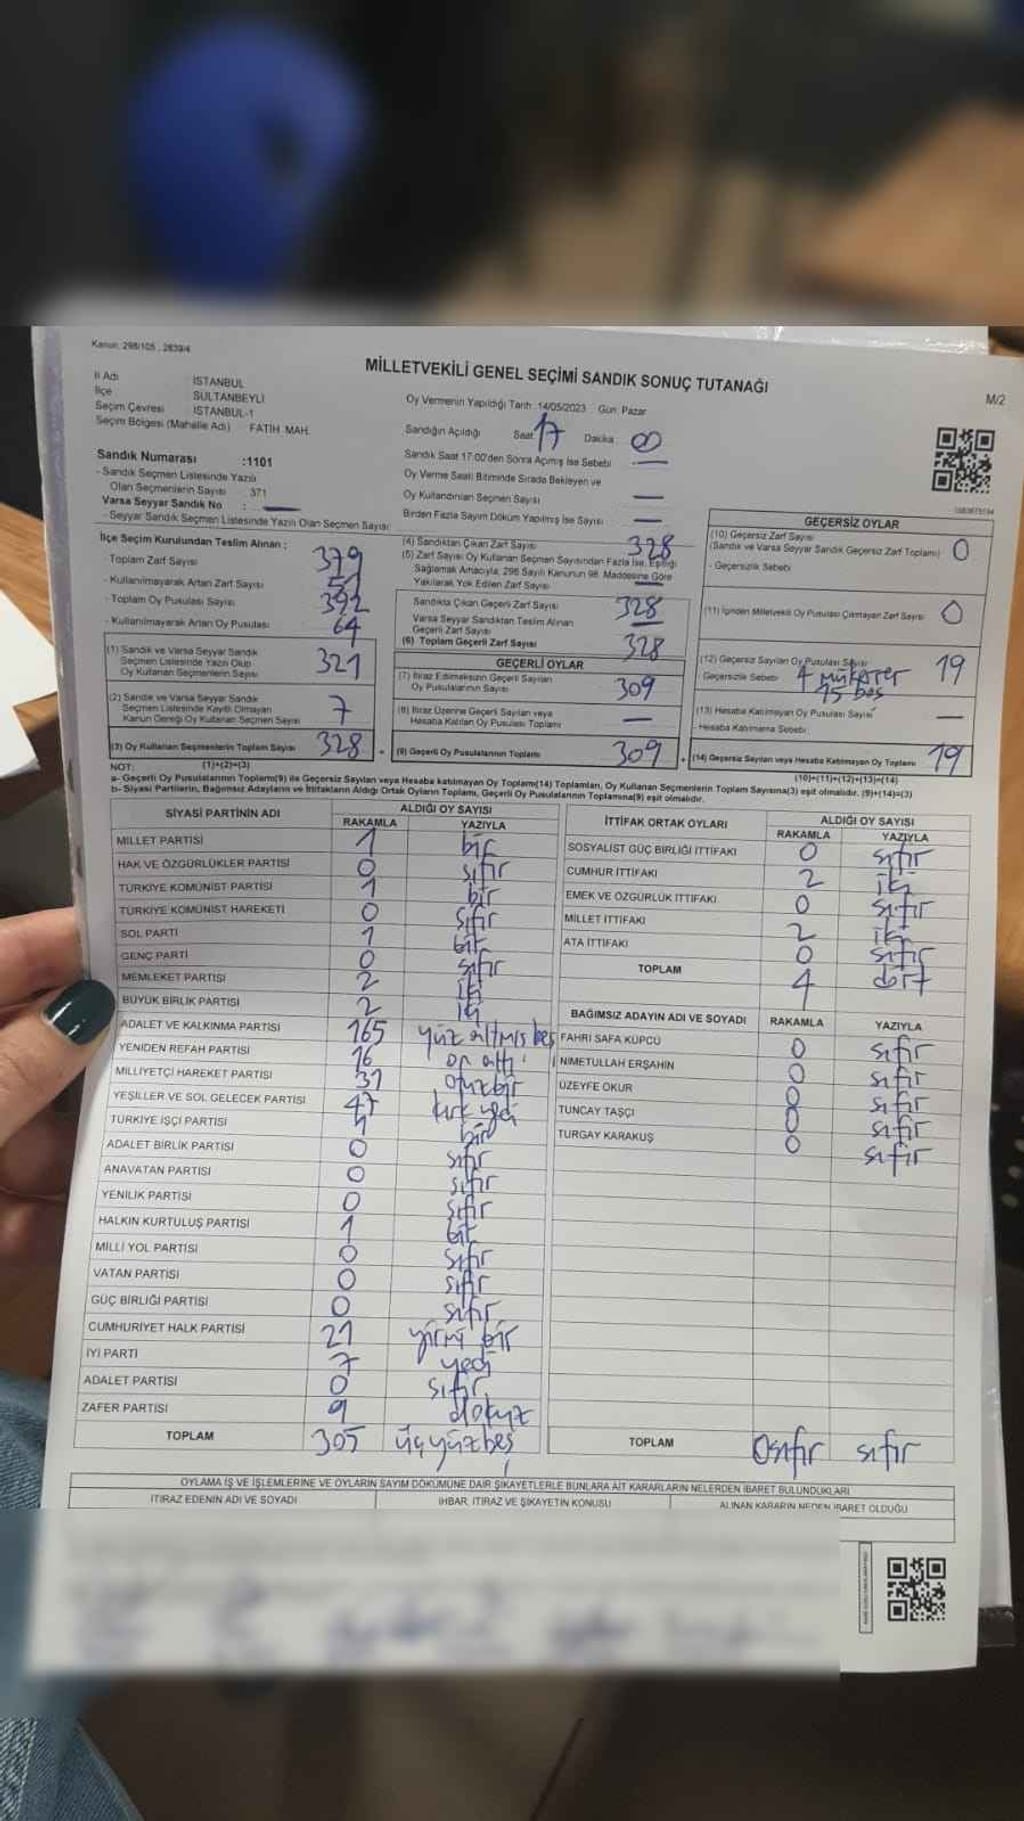 Kanun: 298/105 , 2839/4
MİLLETVEKİLİ GENEL SEÇİMİ SANDIK SONUÇ TUTANAĞI
M/2
İl Adı İSTANBUL
İlçe SULTANBEYLİ
Seçim Çevresi İSTANBUL-1
Seçim Bölgesi (Mahalle Adı) FATİH MAH.
Oy Vermenin Yapıldığı Tarih :14/05/2023 Gün: Pazar
Sandığın Açıldığı Saat 17 Dakika 00
Sandık Saat 17:00'den Sonra Açılmış İse Sebebi —
Oy Verme Saati Bitiminde Sırada Bekleyen ve
Oy Kullandırılan Seçmen Sayısı —
Birden Fazla Sayım Döküm Yapılmış İse Sayısı —
Sandık Numarası :1101
- Sandık Seçmen Listesinde Yazılı
Olan Seçmenlerin Sayısı : 371
Varsa Seyyar Sandık No : —
- Seyyar Sandık Seçmen Listesinde Yazılı Olan Seçmen Sayısı
İlçe Seçim Kurulundan Teslim Alınan ;
- Toplam Zarf Sayısı 379
- Kullanılmayarak Artan Zarf Sayısı 51
- Toplam Oy Pusulası Sayısı 392
- Kullanılmayarak Artan Oy Pusulası 64
(1) Sandık ve Varsa Seyyar Sandık
Seçmen Listesinde Yazılı Olup
Oy Kullanan Seçmenlerin Sayısı 321
(2) Sandık ve Varsa Seyyar Sandık
Seçmen Listesinde Kayıtlı Olmayan
Kanun Gereği Oy Kullanan Seçmen Sayısı 7
(3) Oy Kullanan Seçmenlerin Toplam Sayısı 328
(1)+(2)=(3)
(4) Sandıktan Çıkan Zarf Sayısı 328
(5) Zarf Sayısı Oy Kullanan Seçmen Sayısından Fazla İse, Eşitliği
Sağlamak Amacıyla, 298 Sayılı Kanunun 98. Maddesine Göre
Yakılarak Yok Edilen Zarf Sayısı —
Sandıkta Çıkan Geçerli Zarf Sayısı 328
Varsa Seyyar Sandıktan Teslim Alınan
Geçerli Zarf Sayısı —
(6) Toplam Geçerli Zarf Sayısı 328
GEÇERLİ OYLAR
(7) İtiraz Edilmeksizin Geçerli Sayılan
Oy Pusulalarının Sayısı 309
(8) İtiraz Üzerine Geçerli Sayılan veya
Hesaba Katılan Oy Pusulası Toplamı —
(9) Geçerli Oy Pusulalarının Toplamı 309
GEÇERSİZ OYLAR
(10) Geçersiz Zarf Sayısı
(Sandık ve Varsa Seyyar Sandık Geçersiz Zarf Toplamı) 0
- Geçersizlik Sebebi
(11) İçinden Milletvekili Oy Pusulası Çıkmayan Zarf Sayısı 0
(12) Geçersiz Sayılan Oy Pusulası Sayısı 19
- Geçersizlik Sebebi 4 mükerrer
15 boş
(13) Hesaba Katılmayan Oy Pusulası Sayısı —
- Hesaba Katılmama Sebebi
(14) Geçersiz Sayılan veya Hesaba Katılmayan Oy Toplamı 19
(10)+(11)+(12)+(13)=(14)
NOT:
a- Geçerli Oy Pusulalarının Toplamı(9) ile Geçersiz Sayılan veya Hesaba katılmayan Oy Toplamı(14) Toplamları, Oy Kullanan Seçmenlerin Toplam Sayısına(3) eşit olmalıdır. (9)+(14)=(3)
b- Siyasi Partilerin, Bağımsız Adayların ve İttifakların Aldığı Ortak Oyların Toplamı, Geçerli Oy Pusulalarının Toplamına(9) eşit olmalıdır.
SİYASİ PARTİNİN ADI ALDIĞI OY SAYISI
RAKAMLA YAZIYLA
MİLLET PARTİSİ 1 bir
HAK VE ÖZGÜRLÜKLER PARTİSİ 0 sıfır
TÜRKİYE KOMÜNİST PARTİSİ 1 bir
TÜRKİYE KOMÜNİST HAREKETİ 0 sıfır
SOL PARTİ 1 bir
GENÇ PARTİ 0 sıfır
MEMLEKET PARTİSİ 2 iki
BÜYÜK BİRLİK PARTİSİ 2 iki
ADALET VE KALKINMA PARTİSİ 165 yüz altmış beş
YENİDEN REFAH PARTİSİ 16 on altı
MİLLİYETÇİ HAREKET PARTİSİ 31 otuzbir
YEŞİLLER VE SOL GELECEK PARTİSİ 47 kırk yedi
TÜRKİYE İŞÇİ PARTİSİ 1 bir
ADALET BİRLİK PARTİSİ 0 sıfır
ANAVATAN PARTİSİ 0 sıfır
YENİLİK PARTİSİ 0 sıfır
HALKIN KURTULUŞ PARTİSİ 1 bir
MİLLİ YOL PARTİSİ 0 sıfır
VATAN PARTİSİ 0 sıfır
GÜÇ BİRLİĞİ PARTİSİ 0 sıfır
CUMHURİYET HALK PARTİSİ 21 yirmi bir
İYİ PARTİ 7 yedi
ADALET PARTİSİ 0 sıfır
ZAFER PARTİSİ 9 dokuz
TOPLAM 305 üçyüzbeş
İTTİFAK ORTAK OYLARI ALDIĞI OY SAYISI
RAKAMLA YAZIYLA
SOSYALİST GÜÇ BİRLİĞİ İTTİFAKI 0 sıfır
CUMHUR İTTİFAKI 2 iki
EMEK VE ÖZGÜRLÜK İTTİFAKI 0 sıfır
MİLLET İTTİFAKI 2 iki
ATA İTTİFAKI 0 sıfır
TOPLAM 4 dört
BAĞIMSIZ ADAYIN ADI VE SOYADI RAKAMLA YAZIYLA
FAHRİ SAFA KÜPCÜ 0 sıfır
NİMETULLAH ERŞAHİN 0 sıfır
ÜZEYFE OKUR 0 sıfır
TUNCAY TAŞÇI 0 sıfır
TURGAY KARAKUŞ 0 sıfır
TOPLAM 0sıfır sıfır
OYLAMA İŞ VE İŞLEMLERİNE VE OYLARIN SAYIM DÖKÜMÜNE DAİR ŞİKAYETLERLE BUNLARA AİT KARARLARIN NELERDEN İBARET BULUNDUKLARI
İTİRAZ EDENİN ADI VE SOYADI İHBAR, İTİRAZ VE ŞİKAYETİN KONUSU ALINAN KARARIN NEDEN İBARET OLDUĞU